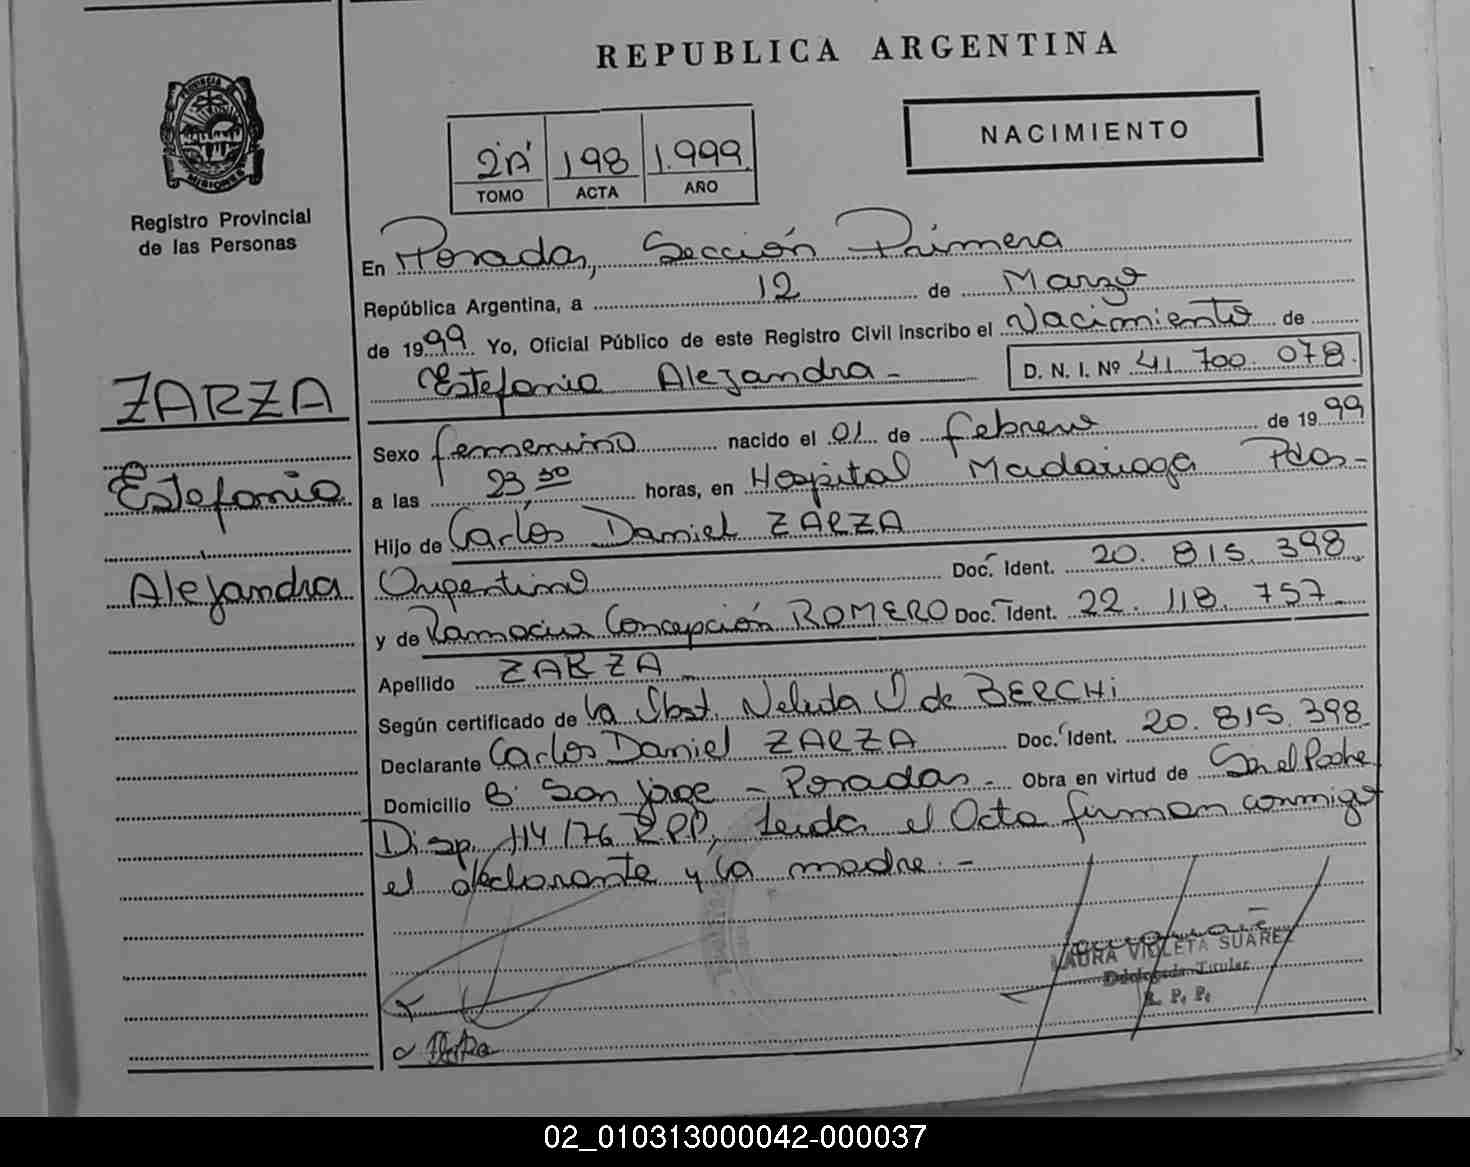 REPUBLICA ARGENTINA
PROVINCIA DE MISIONES
Registro Provincial
de las Personas
2"A" 198 1.999
TOMO ACTA AÑO
NACIMIENTO
En Posadas, Sección Primera
República Argentina, a 12 de Marzo
de 1999 Yo, Oficial Público de este Registro Civil inscribo el Nacimiento de
Estefania Alejandra- D. N. I. Nº 41.700.078.
ZARZA
Estefania
Alejandra
Sexo femenino nacido el 01 de febrero de 1999
a las 23,30 horas, en Hospital Madariaga Pdas-
Hijo de Carlos Daniel ZARZA
Argentino Doc. Ident. 20.815.398
y de Ramona Concepción ROMERO Doc. Ident. 22.118.757
Apellido ZARZA
Según certificado de la Obst. Nelida de BERCHI
Declarante Carlos Daniel ZARZA Doc. Ident. 20.815.398
Domicilio Bº San Jorge - Posadas- Obra en virtud de Ser el Padre
Disp. 114/76 RPP, Leida el Acta firman conmigo
el declarante y la madre.-
LAURA VIOLETA SUAREZ
Delegada Titular
R. P. P.
02_010313000042-000037